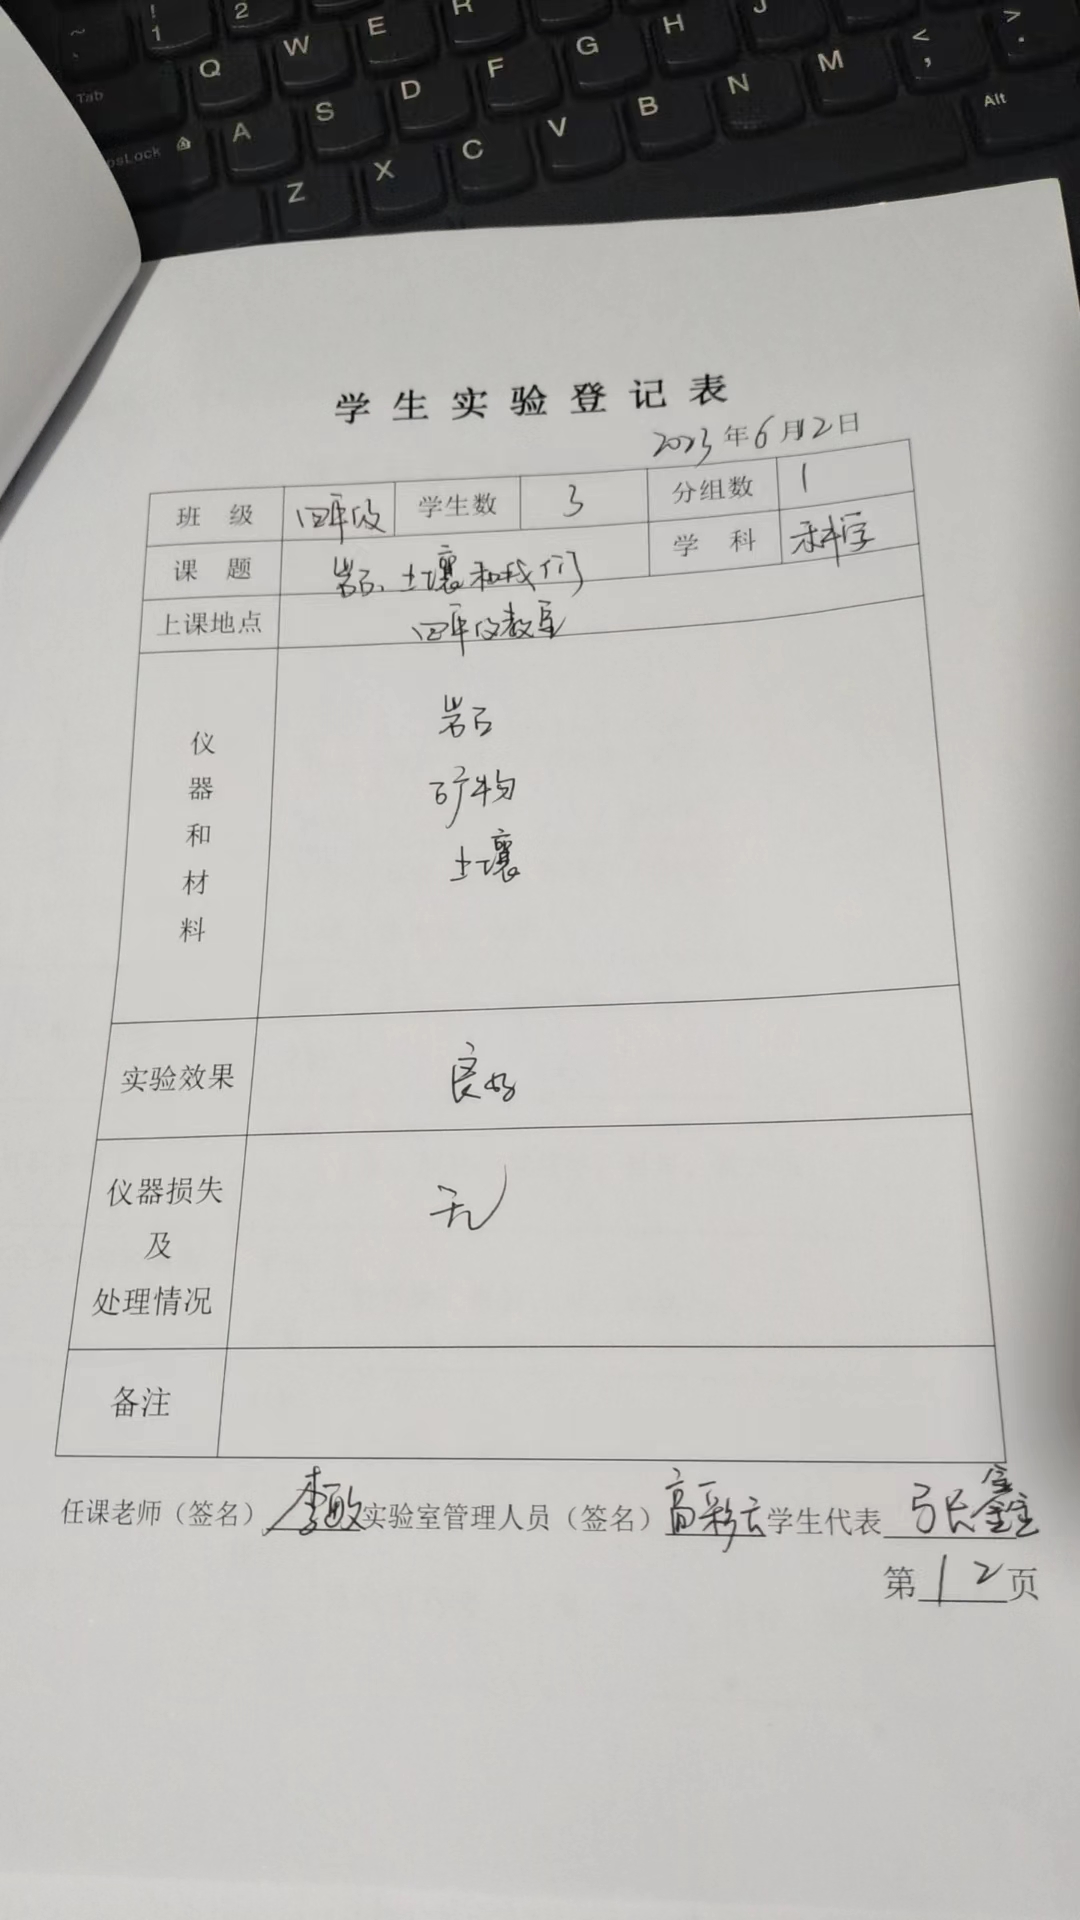 ~ ! 1 2 E R H J > .
Tab Q W G < ,
D F N M Alt
CapsLock A S V B
Z X C
学生实验登记表
2023年6月12日
班级 四年级 学生数 3 分组数 1
课题 岩石、土壤和我们 学科 科学
上课地点 四年级教室
仪器和材料
岩石
矿物
土壤
实验效果 良好
仪器损失
及
处理情况 无
备注
任课老师（签名）李敏 实验室管理人员（签名）高彩云 学生代表 张鑫
第 12 页